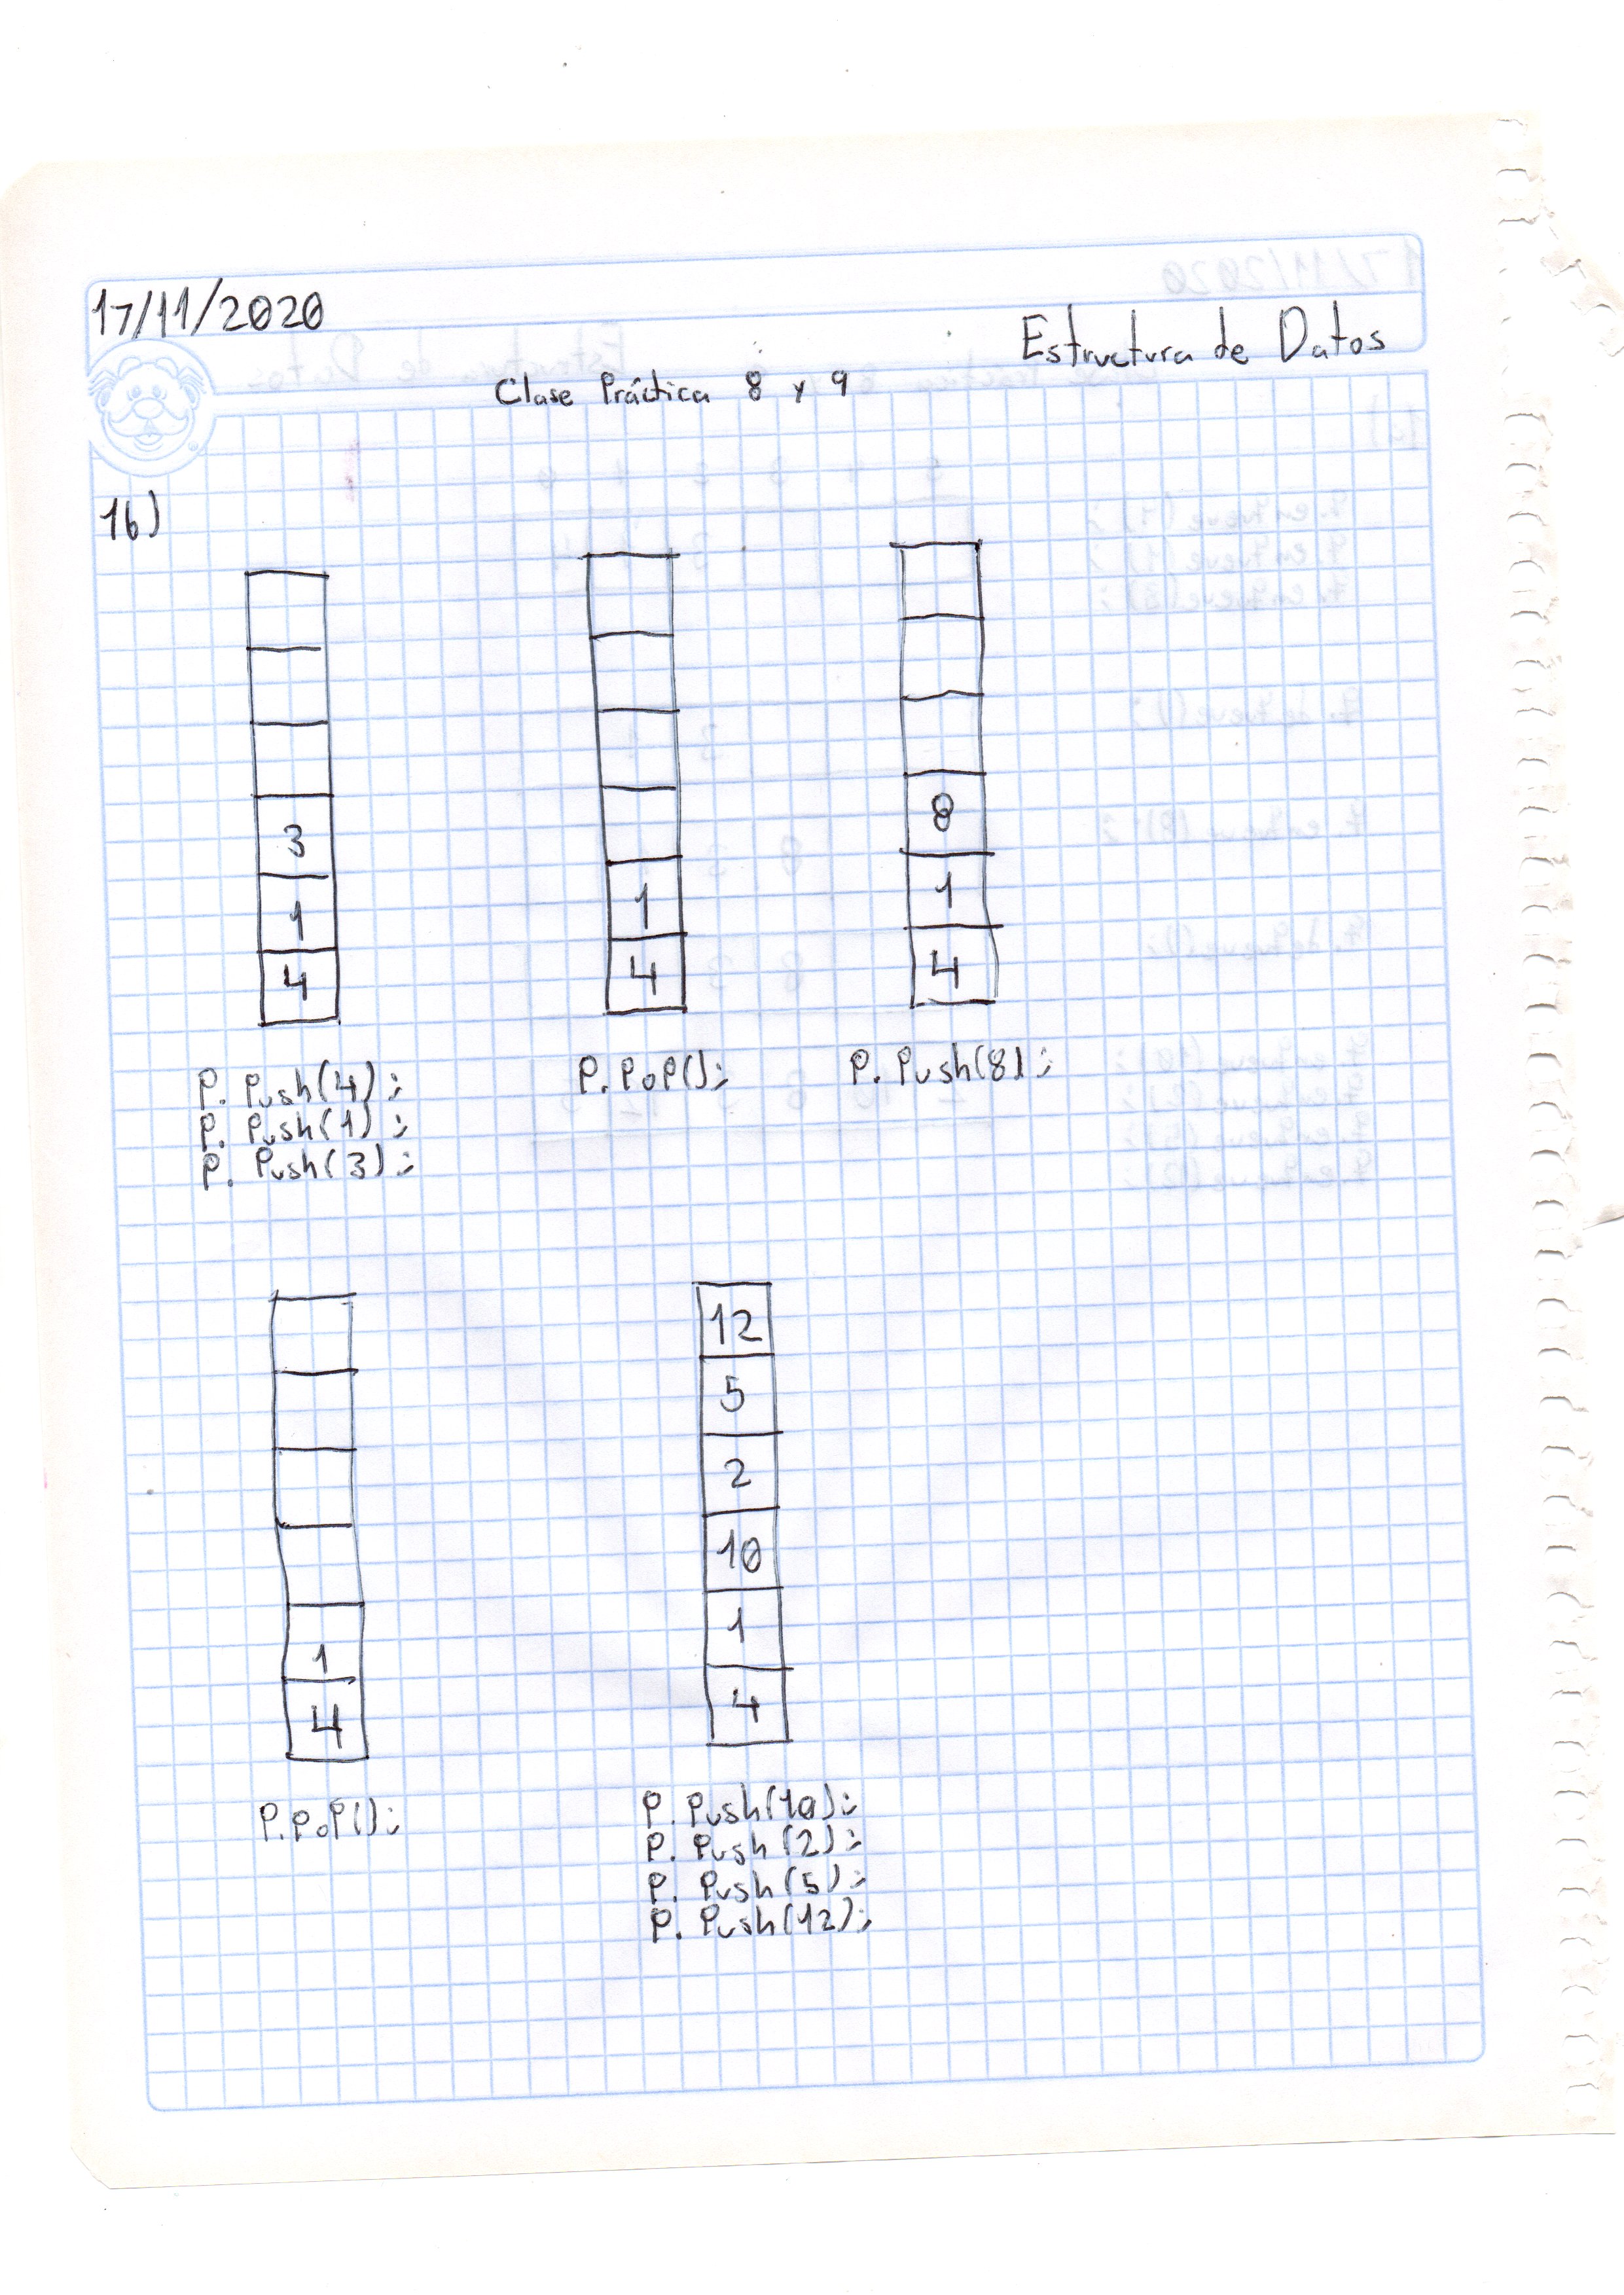 17/11/2020
Estructura de Datos
Clase Práctica 8 y 9
16)
3
1
4
P. Push(4);
P. Push(1);
P. Push(3);
1
4
P. PoP();
8
1
4
P. Push(8);
1
4
P. PoP();
12
5
2
10
1
4
P. Push(10);
P. Push(2);
P. Push(5);
P. Push(12);